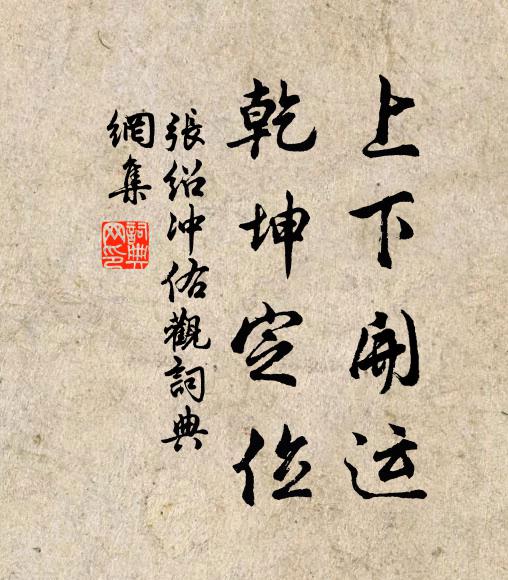 上下開运
乾坤定位
張紹冲佑觀詞典
網集
詞典
网印